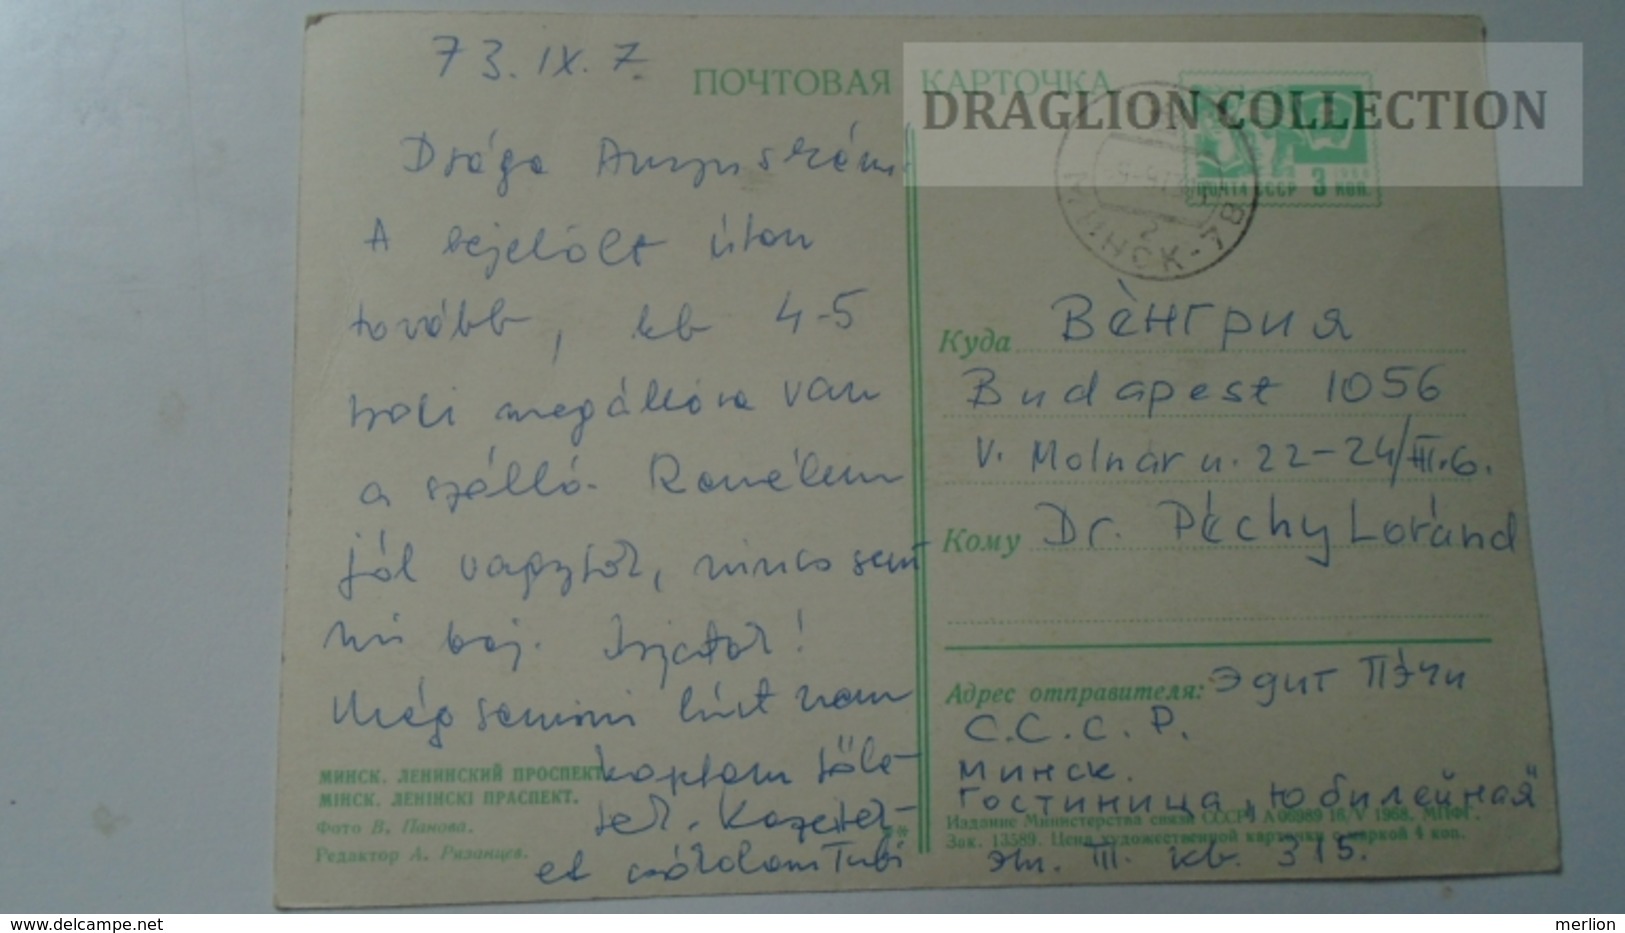 73. IX. 7.
ПОЧТОВАЯ КАРТОЧКА
DRAGLION COLLECTION
ПОЧТА СССР 3 КОП.
МИНСК-78
Drága
A kijelölt úton
tovább, kb 4-5
megállóra van
a szálló. Remélem
jól vagytok, nincs sem
mi baj. Írjatok!
Még semmi hírt nem
kaptam tőle-
tek. Kezeitek-
et csókolom
МИНСК. ЛЕНИНСКИЙ ПРОСПЕКТ.
МІНСК. ЛЕНІНСКІ ПРАСПЕКТ.
Фото В. Панова.
Редактор А. Рязанцев.
Куда Венгрия
Budapest 1056
V. Molnár u. 22-24/III.6.
Кому Dr. Péchy Loránd
Адрес отправителя: Эдит Пэчи
С.С.С.Р.
Минск.
Гостиница „Юбилейная"
Издание Министерства связи СССР. А 06989 16/V 1968. МПФГ.
Зак. 13589. Цена художественной карточки с маркой 4 коп.
эт. III. кв. 315.
delcampe.net
merlion